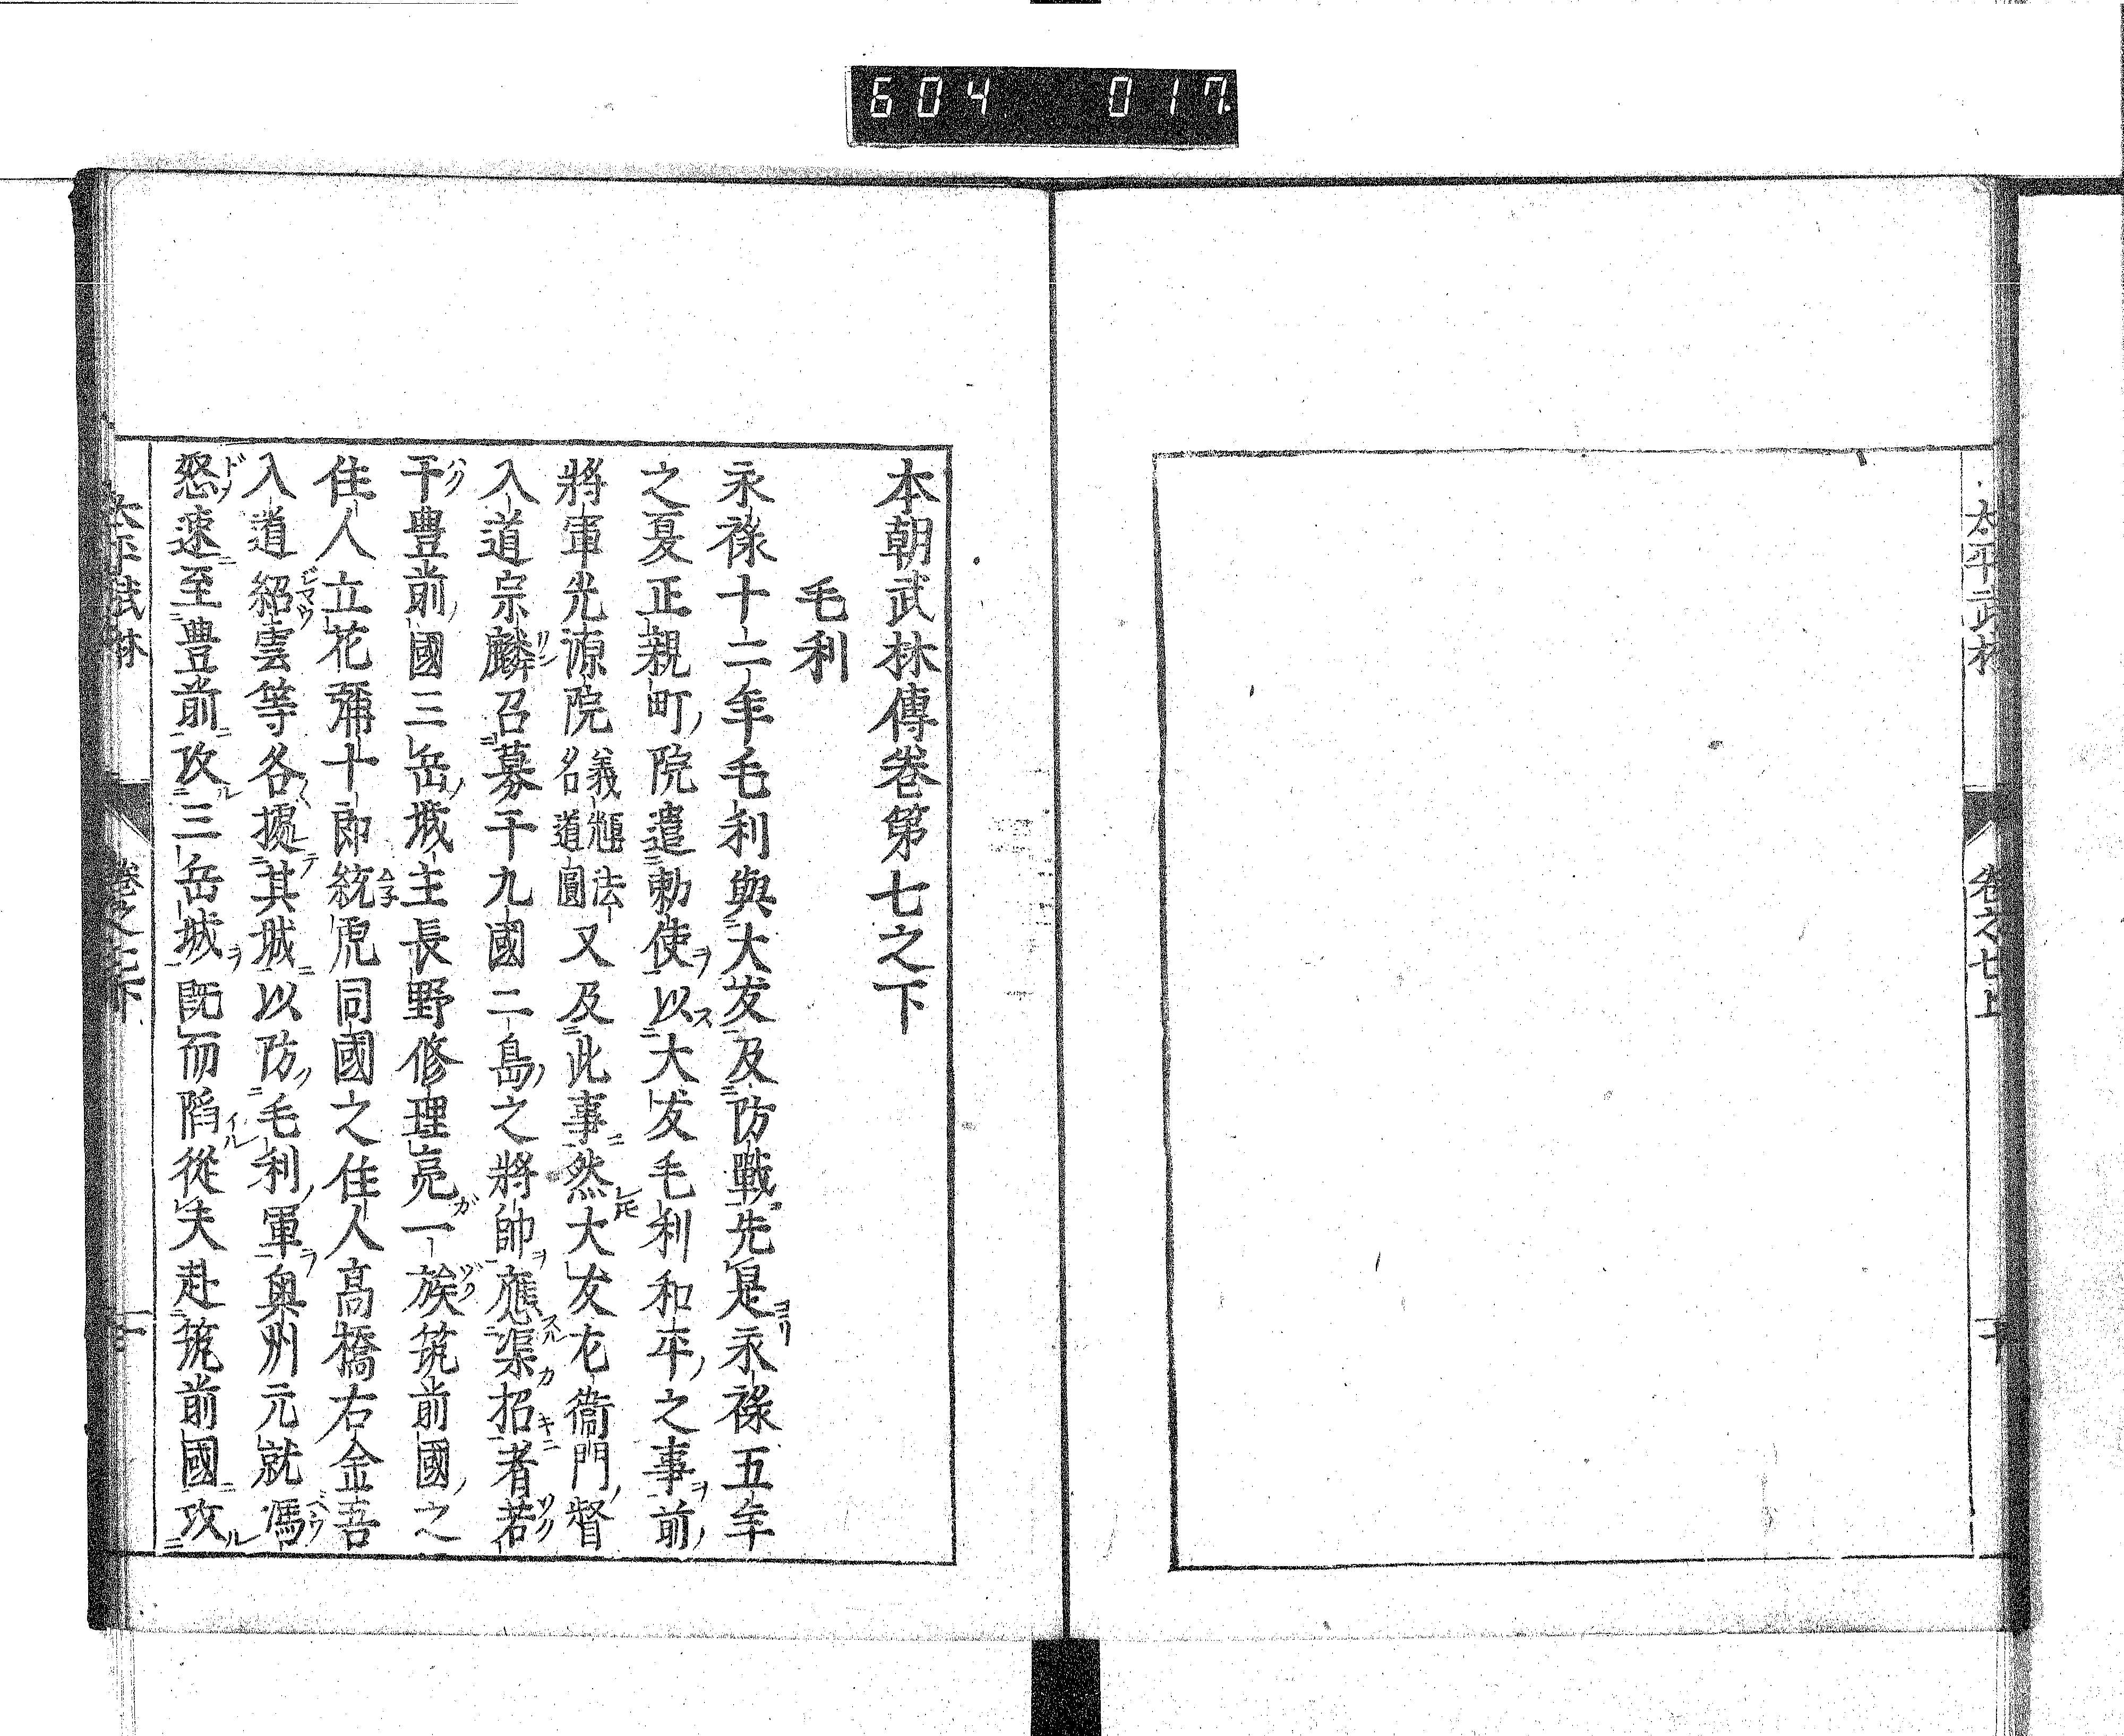 604 017
太平武林 卷之七上
本朝武林傳卷第七之下
毛利
永祿十二年毛利與大友及防戰先是永祿五年
之夏正親町院遣勅使以大友毛利和平之事前
將軍光源院義輝法名道圓又及此事然大友左衞門督
入道宗麟召募于九國二島之將帥應渠招者若
干豊前國三岳城主長野修理亮一族筑前國之
住人立花彌十郎統虎同國之住人高橋右金吾
入道紹雲等各據其城以防毛利軍奥州元就馮
怒速至豊前攻三岳城既而陷從夫赴筑前國攻
太平武林 卷之七下